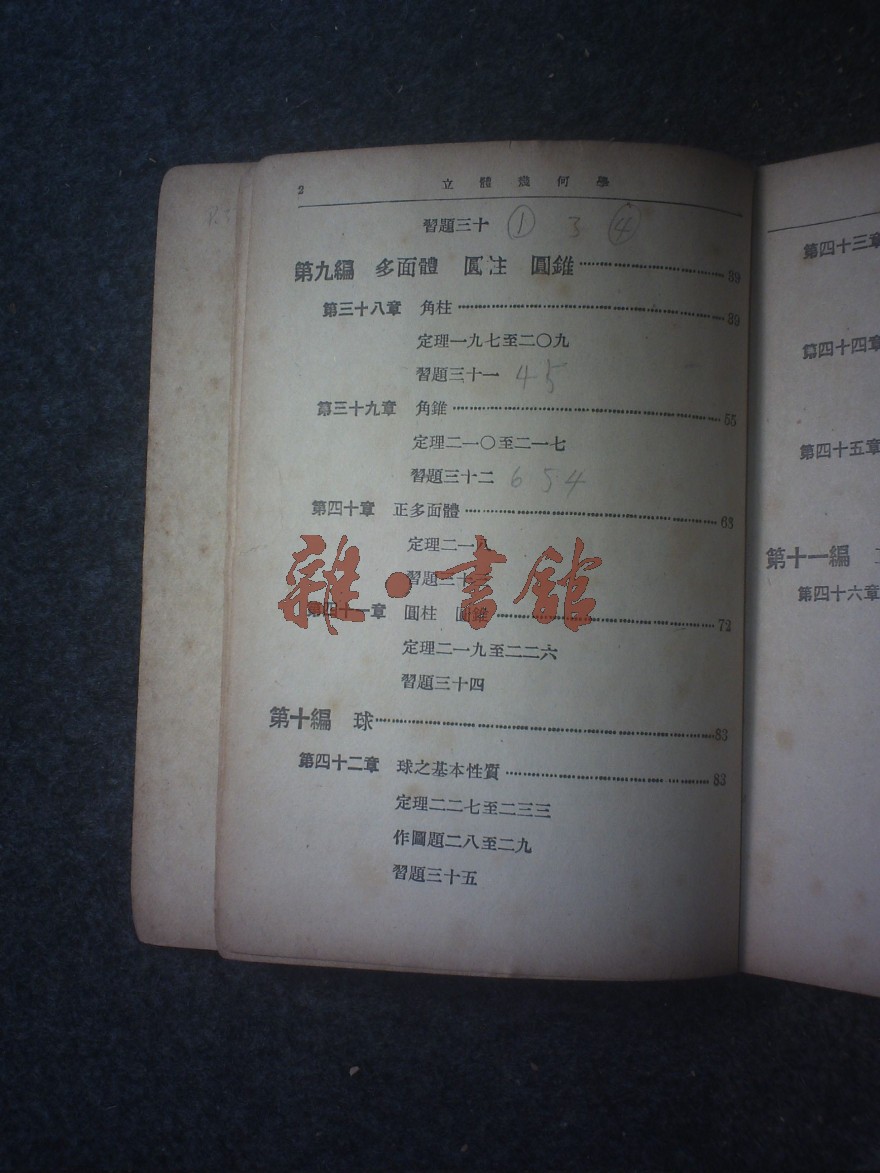 2 立體幾何學
習題三十 ① 3 ④
第九編 多面體 圓柱 圓錐 39
第三十八章 角柱 39
定理一九七至二〇九
習題三十一 4 5
第三十九章 角錐 55
定理二一〇至二一七
習題三十二 6 5 4
第四十章 正多面體 63
定理二一八
習題三十三
第四十一章 圓柱 圓錐 72
定理二一九至二二六
習題三十四
第十編 球 83
第四十二章 球之基本性質 83
定理二二七至二三三
作圖題二八至二九
習題三十五
雜·書館
第四十三章
第四十四章
第四十五章
第十一編
第四十六章